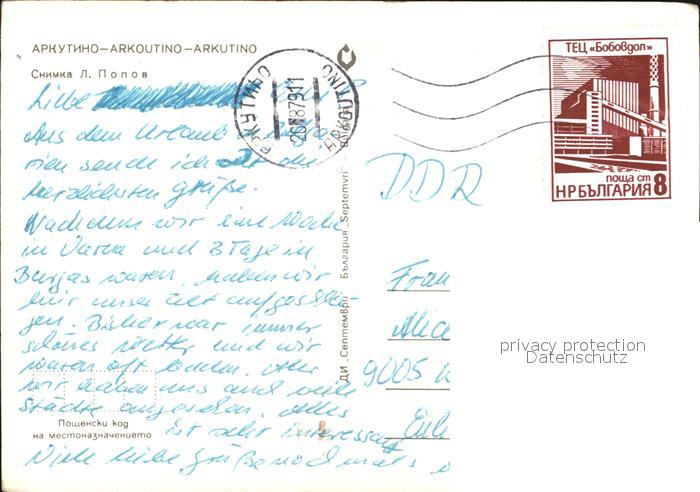 АРКУТИНО—ARKOUTINO—ARKUTINO
Снимка Л. Попов
Liebe
Aus dem Urlaub in
rien sende ich die
herzlichsten Grüße.
Nachdem wir eine Woche
in Varna und 3 Tage in
Burgas waren, haben wir
hier unser Zelt aufgeschla-
gen. Bisher war immer
schönes Wetter und wir
waren oft baden. Aber
wir haben uns auch viele
Städte angesehen. Alles
ist sehr interessant
Viele liebe Grüße nochmals
Пощенски код
на местоназначението
ДИ „Септември" — България „Septemvri" —
АРКУТИНО
ARKOUTINO
ТЕЦ „Бобовдол"
поща ст
НР БЪЛГАРИЯ 8
DDR
Frau
Alice
9005
privacy protection
Datenschutz